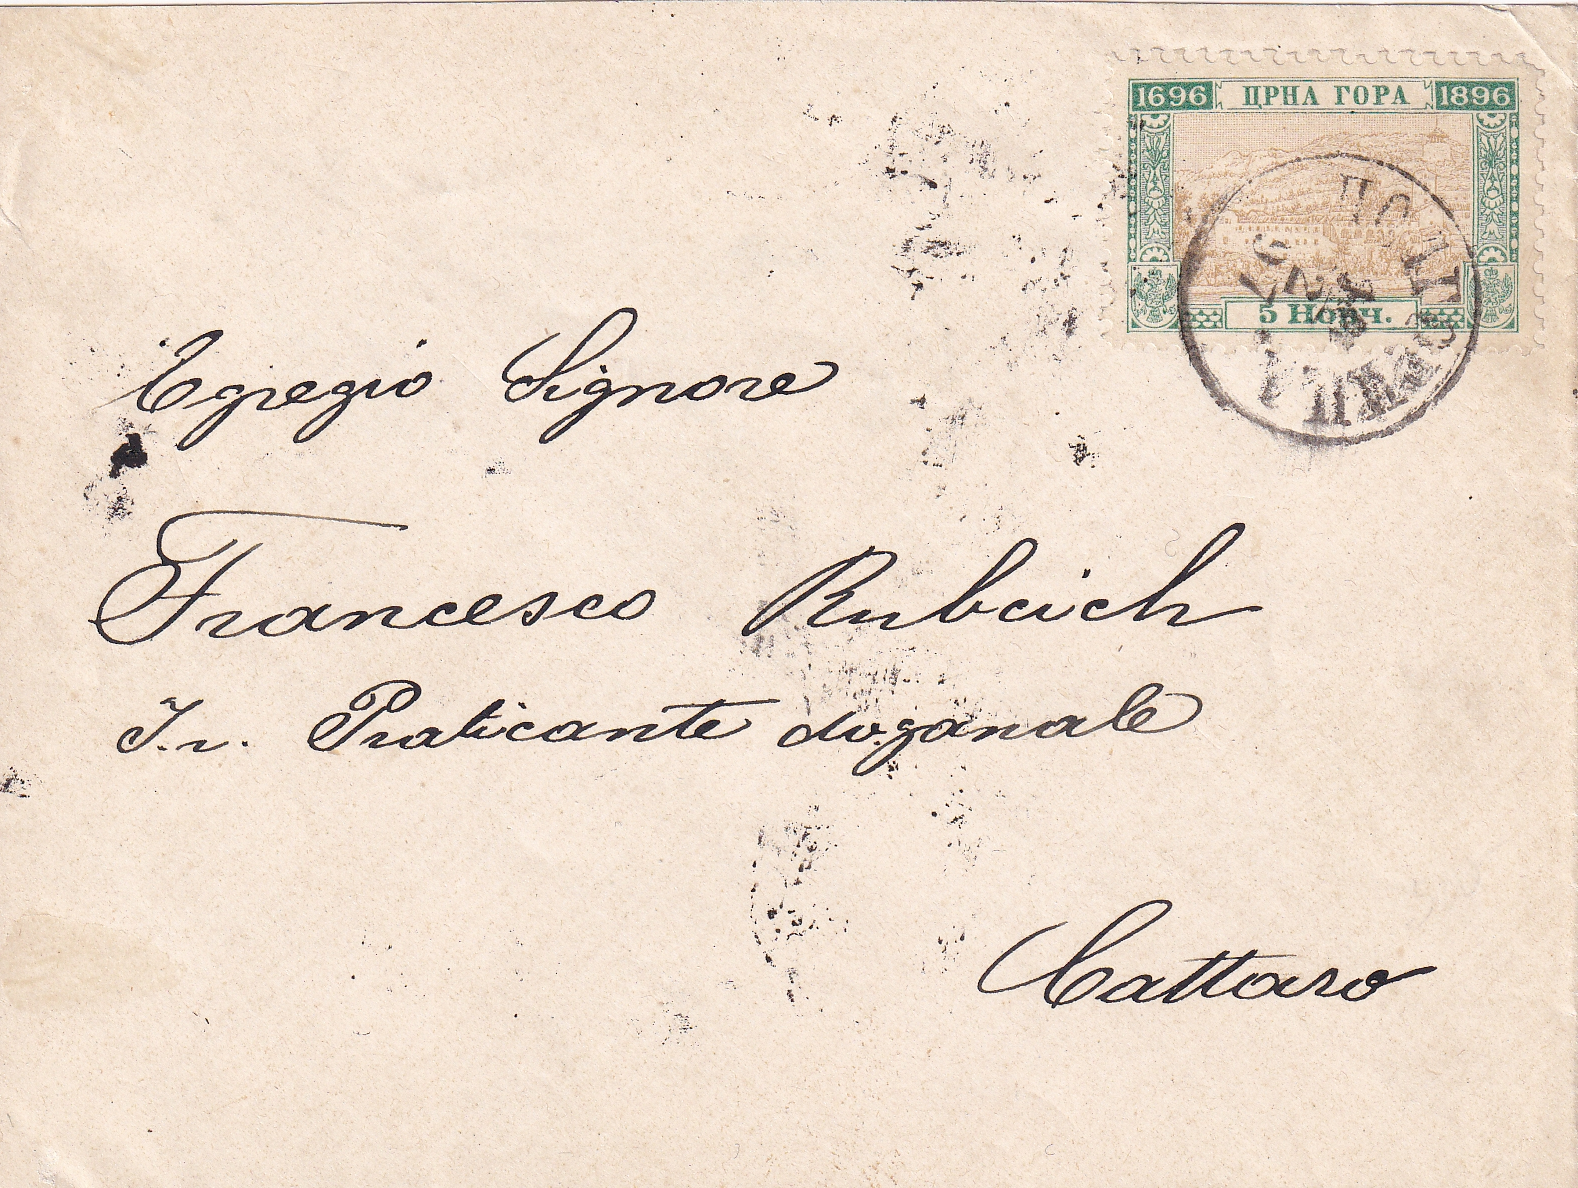 1696 ЦРНА ГОРА 1896
5 Новч.
ПОДГОРИЦА
97
Egregio Signore
Francesco Rubcich
I. r. Praticante doganale
Cattaro